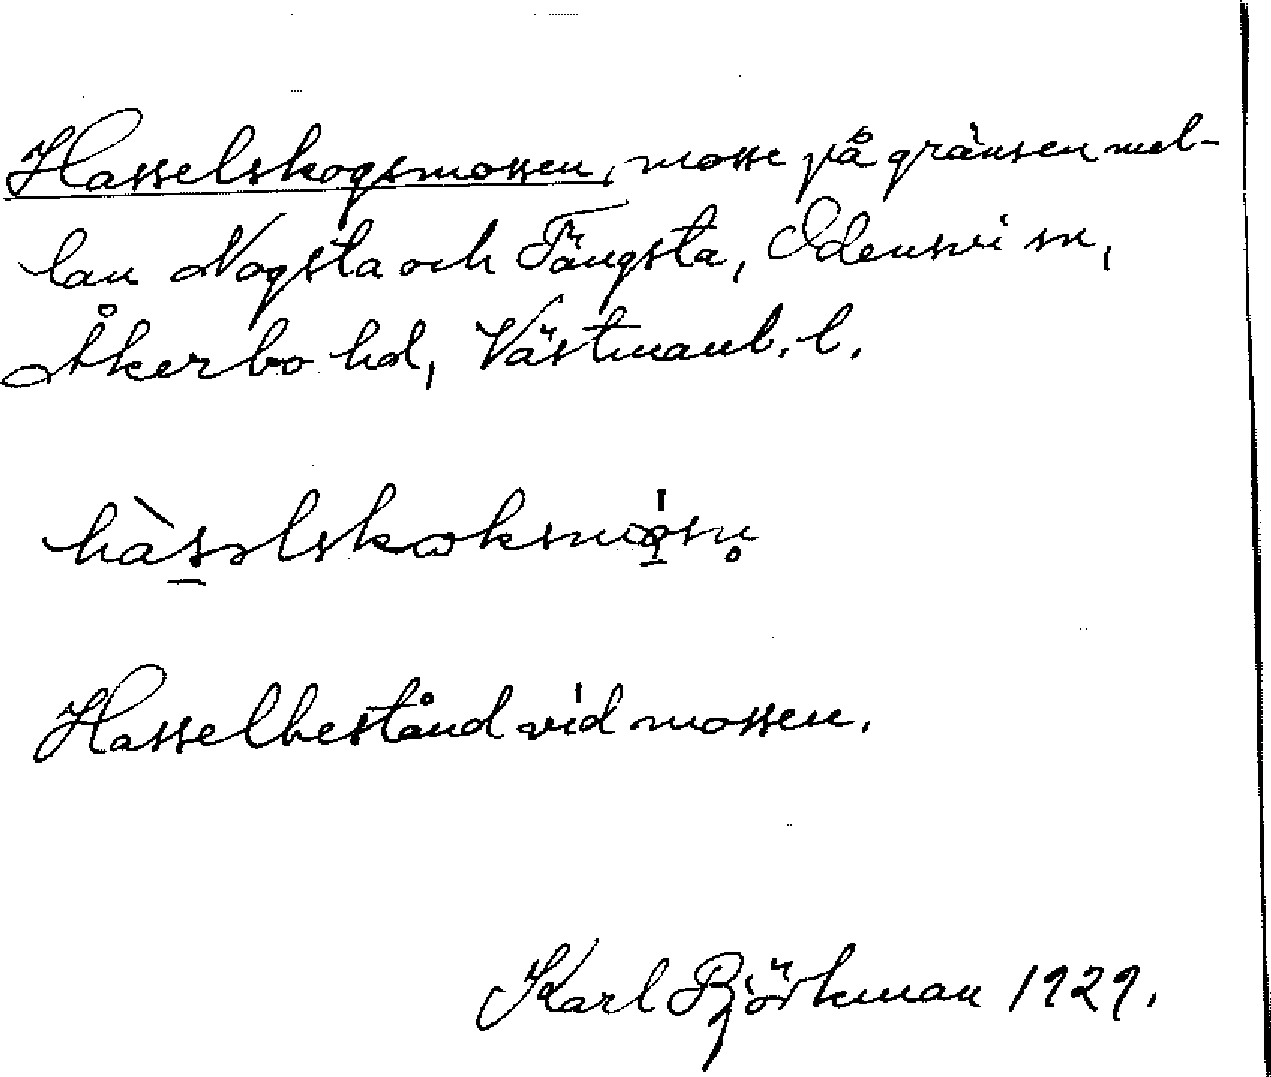 Hasselskogsmossen, mosse på gränsen mel-
lan Nogsta och Tängsta, Odensvi sn,
Åkerbo hd, Västmanl. l.
hàs̠əlskoksmó̠sn̥
Hasselbestånd vid mossen.
Karl Björkman 1929.